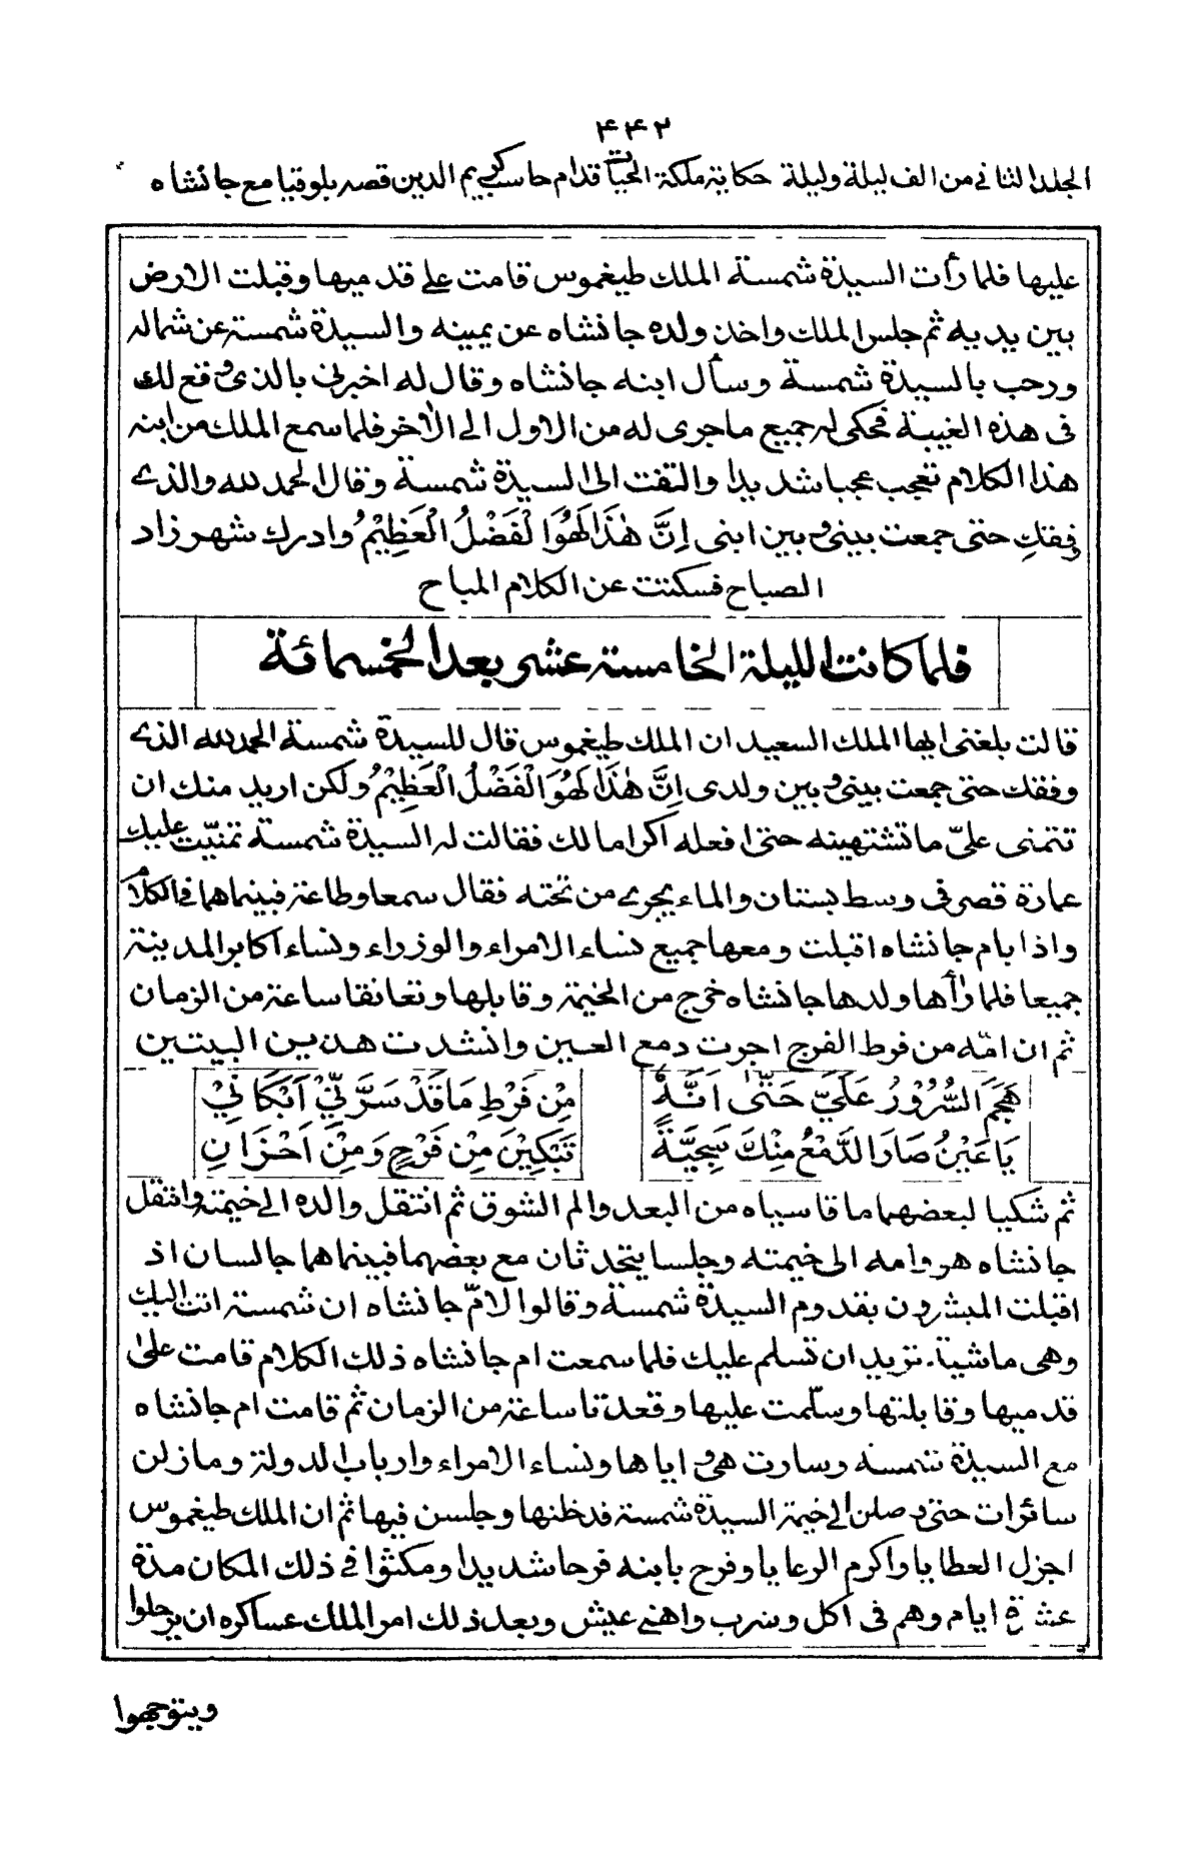 ۴۴۲
المجلد الثاني من الف ليلة وليلة حكاية ملكة الحيات قدام حاسب كريم الدين قصه بلوقيا مع جانشاه
عليها فلما رأت السيدة شمسة الملك طيغموس قامت على قدميها وقبلت الارض
بين يديه ثم جلس الملك واخذ ولده جانشاه عن يمينه والسيدة شمسة عن شماله
ورحب بالسيدة شمسة وسأل ابنه جانشاه وقال له اخبرني بالذى وقع لك
فى هذه الغيبة فحكى له جميع ماجرى له من الاول الى الآخر فلما سمع الملك من ابنه
هذا الكلام تعجب عجبا شديدا والتفت الى السيدة شمسة وقال الحمد لله والذى
وفقك حتى جمعت بينى وبين ابنى اِنَّ هٰذَا لَهُوَا لْفَضْلُ الْعَظِيْمُ وادرك شهرزاد
الصباح فسكتت عن الكلام المباح
فلما كانت الليلة الخامسة عشر بعد الخمسمائة
قالت بلغنى ايها الملك السعيد ان الملك طيغموس قال للسيدة شمسة الحمد لله الذى
وفقك حتى جمعت بينى وبين ولدى اِنَّ هٰذَا لَهُوَ الْفَضْلُ الْعَظِيْمُ ولكن اريد منك ان
تتمنى علىّ ما تشتهينه حتى افعله اكراما لك فقالت له السيدة شمسة تمنّيت عليك
عمارة قصر فى وسط بستان والماء يجرى من تحته فقال سمعا وطاعة فبينما هما في الكلام
واذا بام جانشاه اقبلت ومعها جميع نساء الامراء والوزراء ونساء اكابر المدينة
جميعا فلما رأها ولدها جانشاه خرج من الخيمة وقابلها وتعانقا ساعة من الزمان
ثم ان امّه من فرط الفرح اجرت دمع العين وانشدت هذين البيتين
هَجَمَ السُّرُوْرُ عَلَيَّ حَتّٰى اَنَّهٗ مِنْ فَرْطِ مَا قَدْ سَرَّنِيْ اَبْكَانِيْ
يَا عَيْنُ صَارَ الدَّمْعُ مِنْكَ سَجِيَّةً تَبْكِيْنَ مِنْ فَرَحٍ وَمِنْ اَحْزَانِ
ثم شكيا لبعضهما ما قاسياه من البعد والم الشوق ثم انتقل والده الى خيمته وانتقل
جانشاه هو وامه الى خيمته وجلسا يتحدثان مع بعضهما فبينما هما جالسان اذ
اقبلت المبشرون بقدوم السيدة شمسة وقالوا لامّ جانشاه ان شمسة اتت اليك
وهى ماشية تريد ان تسلم عليك فلما سمعت ام جانشاه ذلك الكلام قامت على
قدميها وقابلتها وسلّمت عليها وقعدتا ساعة من الزمان ثم قامت ام جانشاه
مع السيدة شمسة وسارت هى واياها ونساء الامراء وارباب الدولة ومازلن
سائرات حتى وصلن الى خيمة السيدة شمسة فدخلنها وجلسن فيها ثم ان الملك طيغموس
اجزل العطايا واكرم الرعايا وفرح بابنه فرحا شديدا ومكثوا في ذلك المكان مدة
عشرة ايام وهم فى اكل وشرب واهنى عيش وبعد ذلك امر الملك عساكره ان يرحلوا
ويتوجهوا